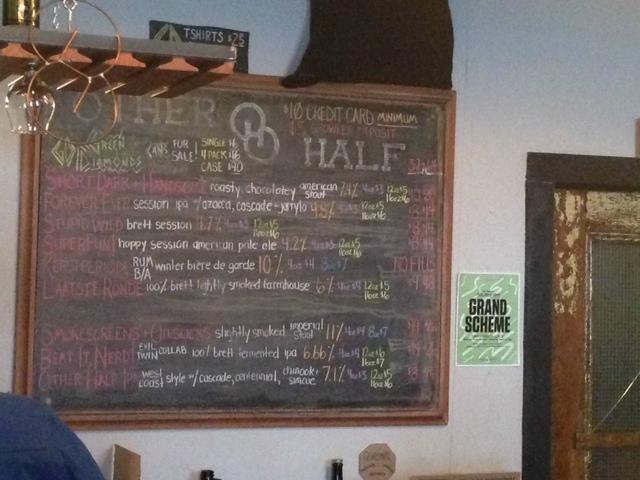 TSHIRTS $25
OTHER HALF
$10 CREDIT CARD MINIMUM
$5 GROWLER DEPOSIT
GREEN DIAMONDS CANS FOR SALE!
SINGLE $6
4 PACK $16
CASE
SHORT DARK + HANDSOME roasty, chocolatey american stout 7.4%
session ipa w/ azacca, cascade + 4.8% 12oz $5 16oz $6
STUPID WILD brett session 4.7% 12oz $5 16oz $6
SUPERFUN! hoppy session american pale ale 4.2% 12oz $5 16oz $6
RUM B/A winter bière de garde 10% 4oz $4 8oz $7 NO FILLS
LAATSTE RONDE 100% brett lightly smoked farmhouse 6% 4oz $4 12oz $5 16oz $6
SMOKESCREENS + slightly smoked imperial stout 11% 4oz $4 8oz $7
BEAT IT NERD! EVIL TWIN COLLAB 100% brett fermented ipa 6.66% 4oz $4 12oz $6 16oz $7
OTHER HALF IPA west coast style w/ cascade, centennial, chinook + simcoe 7.1% 4oz $3 12oz $5 16oz $6
GRAND
SCHEME